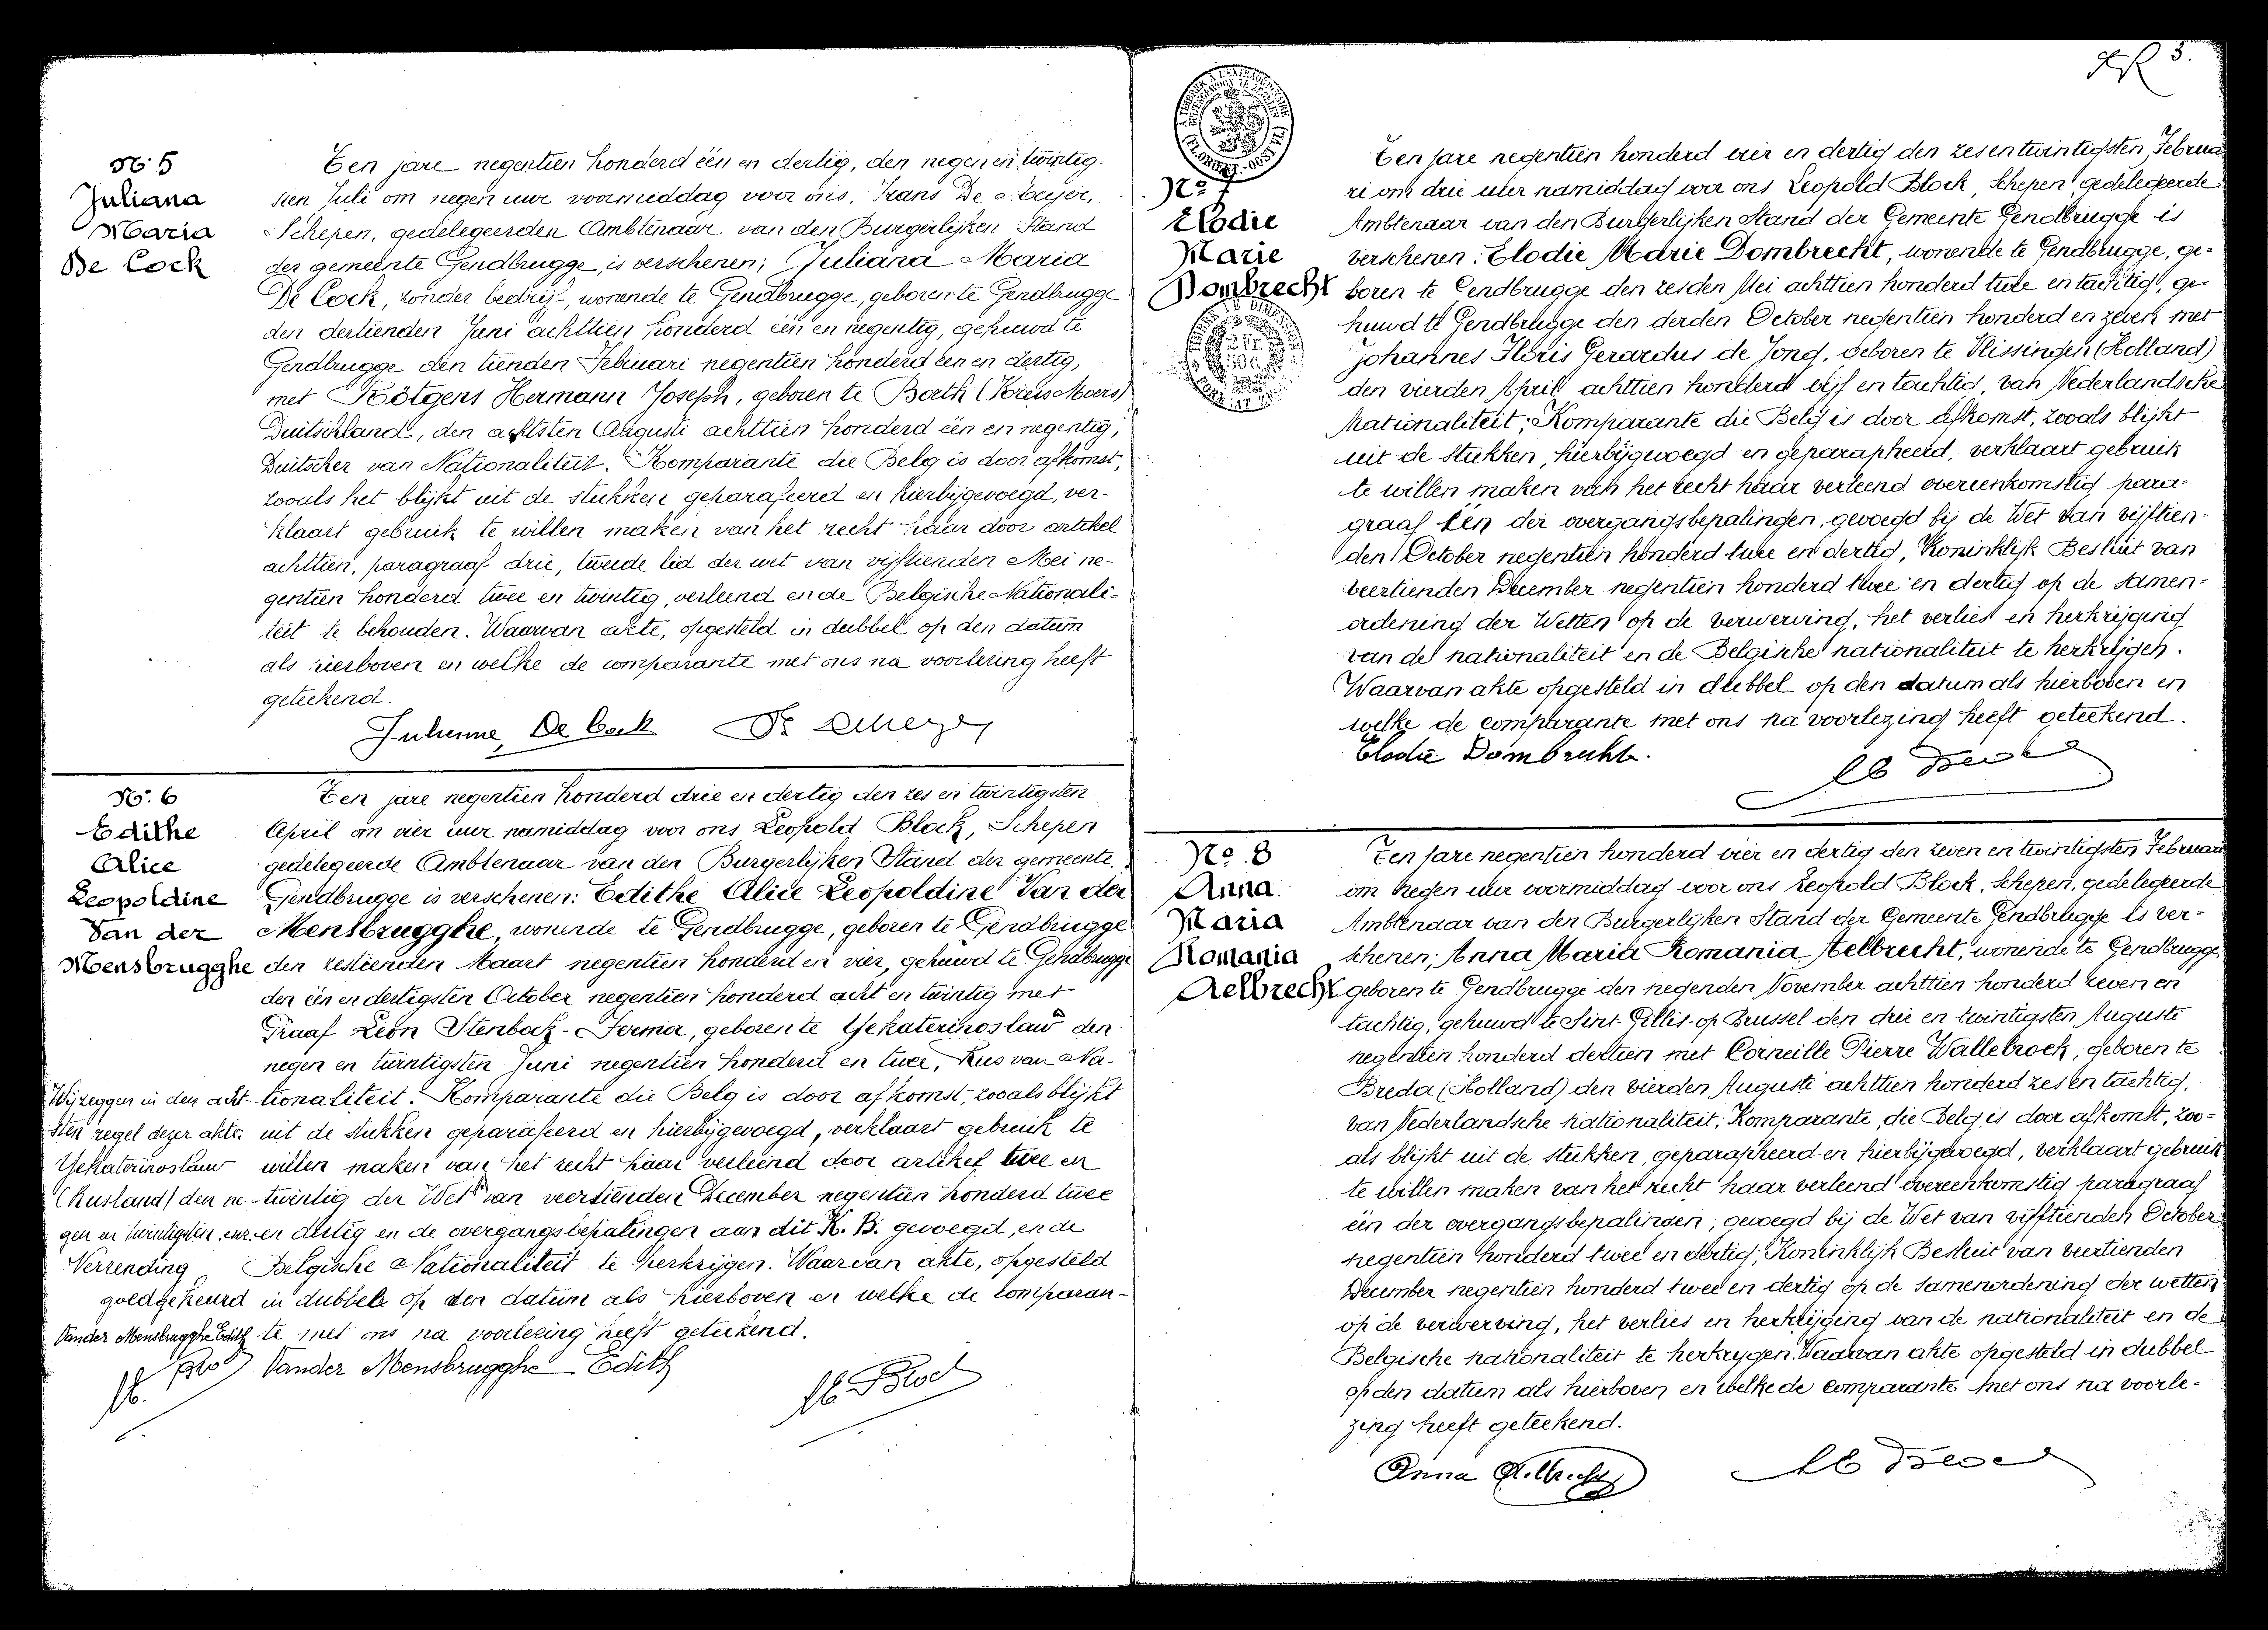 N° 5
Juliana
Maria
De Cock
Ten jare negentien honderd één en dertig, den negen en twintig
sten Juli om negen uur voormiddag voor ons, Frans De Meyer,
Schepen, gedelegeerden Ambtenaar van den Burgerlijken Stand
der gemeente Gendbrugge, is verschenen; Juliana Maria
De Cock, zonder bedrijf, wonende te Gendbrugge, geboren te Gendbrugge
den dertienden Juni achttien honderd één en negentig, gehuwd te
Gendbrugge den tienden Februari negentien honderd één en dertig,
met Kötgens Hermann Joseph, geboren te Borth (Kreis Moers)
Duitschland, den achtsten Augusti achttien honderd één en negentig,
Duitscher van Nationaliteit. Komparante die Belg is door afkomst,
zooals het blijkt uit de stukken geparafeerd en hierbijgevoegd, ver-
klaart gebruik te willen maken van het recht haar door artikel
achttien, paragraaf drie, tweede lid der wet van vijftienden Mei ne-
gentien honderd twee en twintig, verleend en de Belgische Nationali-
teit te behouden. Waarvan akte, opgesteld in dubbel op den datum
als hierboven en welke de comparante met ons na voorlezing heeft
geteekend.
Julienne De Cock De Meyer
N° 6
Edithe
Alice
Leopoldine
Van der
Mensbrugghe
Ten jare negentien honderd drie en dertig den zes en twintigsten
April om vier uur namiddag voor ons Leopold Block, Schepen
gedelegeerde Ambtenaar van den Burgerlijken Stand der gemeente
Gendbrugge is verschenen: Edithe Alice Leopoldine Van der
Mensbrugghe, wonende te Gendbrugge, geboren te Gendbrugge
den zestienden Maart negentien honderd en vier, gehuwd te Gendbrugge
den één en dertigsten October negentien honderd acht en twintig met
Graaf Léon Stenbock-Fermor, geboren te Yekaterinoslaw den
negen en twintigsten Juni negentien honderd en twee, Rus van Na-
tionaliteit. Komparante die Belg is door afkomst, zooals blijkt
uit de stukken geparafeerd en hierbijgevoegd, verklaart gebruik te
willen maken van het recht haar verleend door artikel twee en
twintig der Wet van veertienden December negentien honderd twee
en dertig en de overgangsbepalingen aan dit K. B. gevoegd, en de
Belgische Nationaliteit te herkrijgen. Waarvan akte, opgesteld
in dubbel op den datum als hierboven en welke de comparan-
te met ons na voorlezing heeft geteekend.
Wij zeggen in den acht-
sten regel dezer akte:
Yekaterinoslaw
(Rusland) den ne-
gen en twintigsten enz.
Verzending
goedgekeurd
Vander Mensbrugghe Edith
Vander Mensbrugghe Edith
Lb. Block
3.
N° 7
Elodie
Marie
Dombrecht
Ten jare negentien honderd vier en dertig den zesentwintigsten Februa
ri om drie uur namiddag voor ons Leopold Block, Schepen gedelegeerde
Ambtenaar van den Burgerlijken Stand der Gemeente Gendbrugge is
verschenen: Elodie Marie Dombrecht, wonende te Gendbrugge, ge-
boren te Gendbrugge den zesden Mei achttien honderd twee en tachtig, ge-
huwd te Gendbrugge den derden October negentien honderd en zeven met
Johannes Floris Gerardus de Jong, geboren te Vlissingen (Holland)
den vierden April achttien honderd vijf en tachtig, van Nederlandsche
Nationaliteit; Komparante die Belg is door afkomst, zooals blijkt
uit de stukken, hierbijgevoegd en geparapheerd, verklaart gebruik
te willen maken van het recht haar verleend overeenkomstig para-
graaf één der overgangsbepalingen, gevoegd bij de Wet van vijftien-
den October negentien honderd twee en dertig, Koninklijk Besluit van
veertienden December negentien honderd twee en dertig op de samen-
ordening der Wetten op de verwerving, het verlies en herkrijging
van de nationaliteit en de Belgische nationaliteit te herkrijgen.
Waarvan akte opgesteld in dubbel op den datum als hierboven en
welke de comparante met ons na voorlezing heeft geteekend.
Elodie Dombrecht.
N° 8
Anna
Maria
Romania
Aelbrecht
Ten jare negentien honderd vier en dertig den zeven en twintigsten Februari
om negen uur voormiddag voor ons Leopold Block, Schepen, gedelegeerde
Ambtenaar van den Burgerlijken Stand der Gemeente Gendbrugge is ver-
schenen; Anna Maria Romania Aelbrecht, wonende te Gendbrugge,
geboren te Gendbrugge den negenden November achttien honderd zeven en
tachtig, gehuwd te Sint-Gillis-op Brussel den drie en twintigsten Augusti
negentien honderd dertien met Corneille Pierre Wallebroek, geboren te
Breda (Holland) den vierden Augusti achttien honderd zes en tachtig,
van Nederlandsche nationaliteit; Komparante, die Belg is door afkomst, zoo-
als blijkt uit de stukken, geparapheerd en hierbijgevoegd, verklaart gebruik
te willen maken van het recht haar verleend overeenkomstig paragraaf
één der overgangsbepalingen, gevoegd bij de Wet van vijftienden October
negentien honderd twee en dertig; Koninklijk Besluit van veertienden
December negentien honderd twee en dertig op de samenordening der wetten
op de verwerving, het verlies en herkrijging van de nationaliteit en de
Belgische nationaliteit te herkrijgen. Waarvan akte opgesteld in dubbel
op den datum als hierboven en welke de comparante met ons na voorle-
zing heeft geteekend.
Anna Aelbrecht